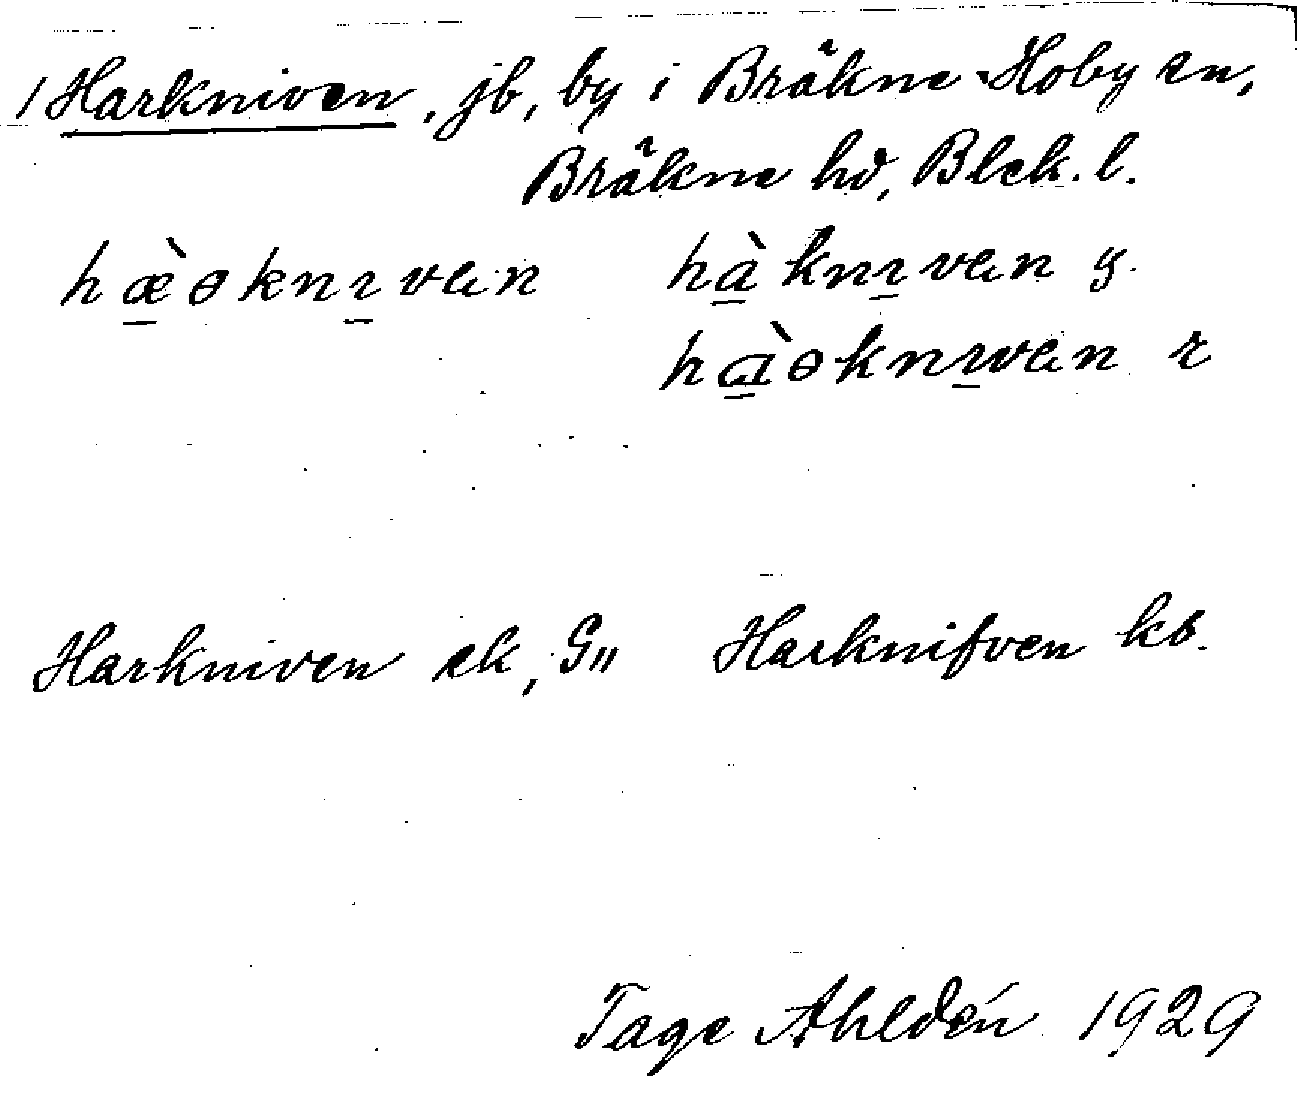 / Harkniven, jb, by i Bräkne-Hoby sn,
Bräkne hd, Blek. l.
hæ̀ɵknɪvɐn hàknɪvɐn y.
hɑ̀ɵknɪvɐn r
Harkniven ek, G" Harknifven kb.
Tage Ahldén 1929